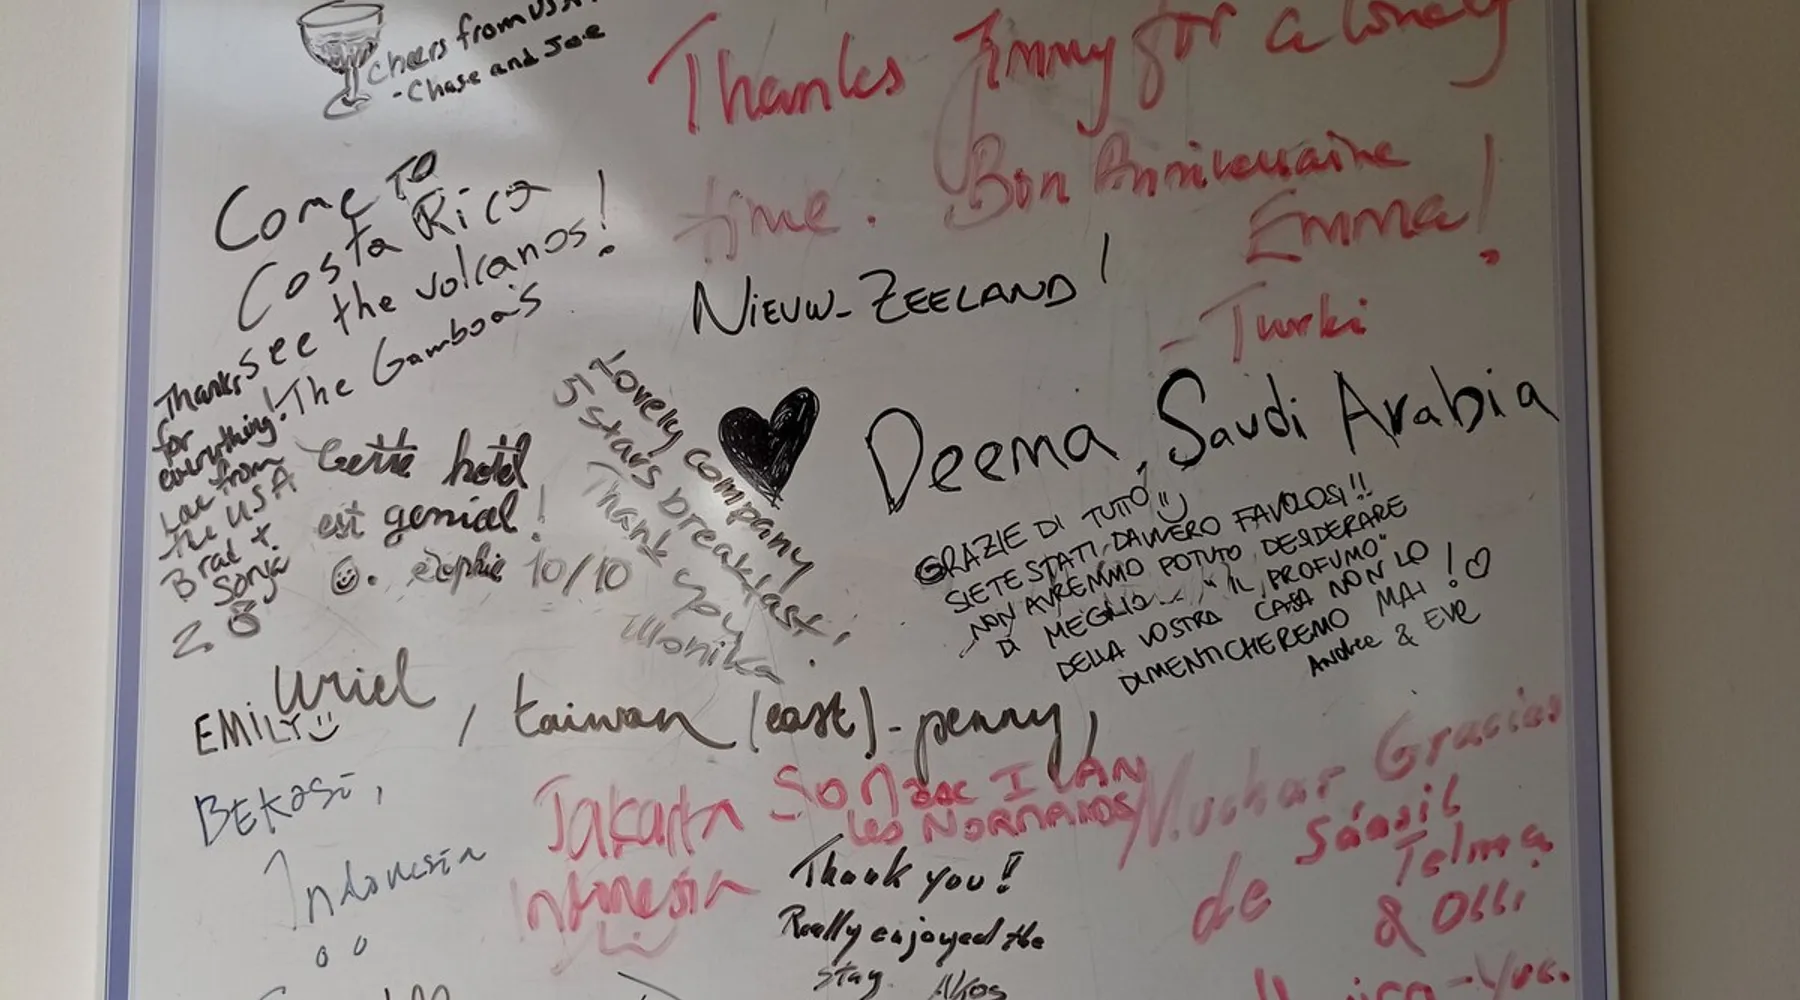 Cheers from USA
- Chase and Joe
Thanks Jimmy for a lovely
time. Bon Anniversaire
Emma!
- Turki
Come To
Costa Rica
see the volcanos!
The Gamboa's
NIEUW-ZEELAND!
Thanks
for
everything!
Love from
the USA
Brad +
Sonja
Cette hotel
est genial!
Sophie 10/10
Lovely company
5 stars breakfast!
Thank you
Monika
Deema, Saudi Arabia
GRAZIE DI TUTTO
SIETE STATI DAVVERO FAVOLOSI!!
NON AVREMMO POTUTO DESIDERARE
DI MEGLIO... "IL PROFUMO"
DELLA VOSTRA CASA NON LO
DIMENTICHEREMO MAI!
Andree & EVE
Uriel
EMILY
, taiwan (east) - penny,
BEKASI,
Indonesia
Jakarta
Indonesia
LES NORMANDS
Muchas Gracias
de
Telma
& Olli
Thank you!
Really enjoyed the
stay